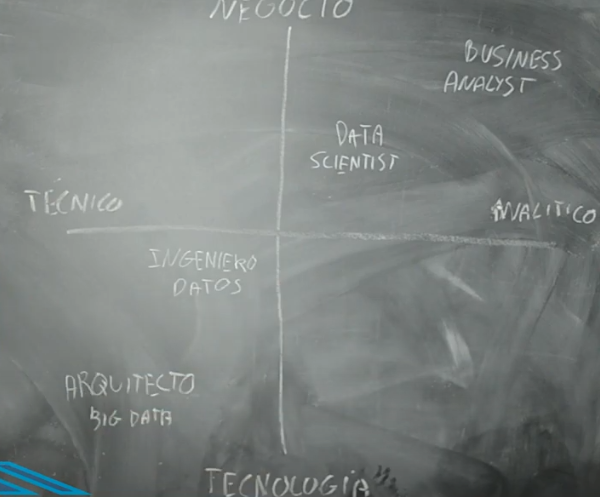 NEGOCIO
BUSINESS
ANALYST
DATA
SCIENTIST
TÉCNICO
ANALITICO
INGENIERO
DATOS
ARQUITECTO
BIG DATA
TECNOLOGÍA